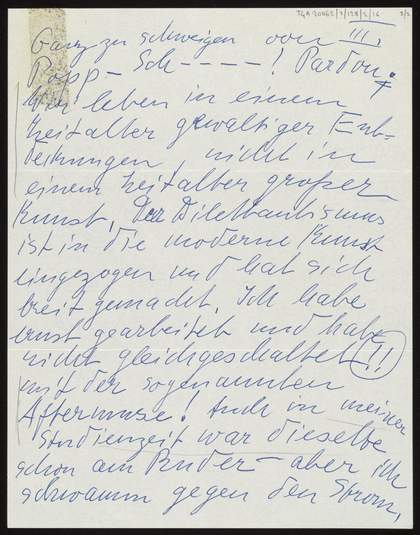 TGA 20062/3/128/2/16 3/2
Ganz zu schweigen von III.
Popp – Sch – – – – ! Pardon.
Wir leben in einem
Zeitalter gewaltiger Ent-
deckungen, nicht in
einem Zeitalter grosser
Kunst. Der Dilettantismus
ist in die moderne Kunst
eingezogen und hat sich
breit gemacht. Ich habe
ernst gearbeitet und habe
nicht gleichgeschaltet !!
mit der sogenannten
Aftermuse. Auch in meiner
Studienzeit war dieselbe
schon am Ruder – aber ich
schwamm gegen den Strom,